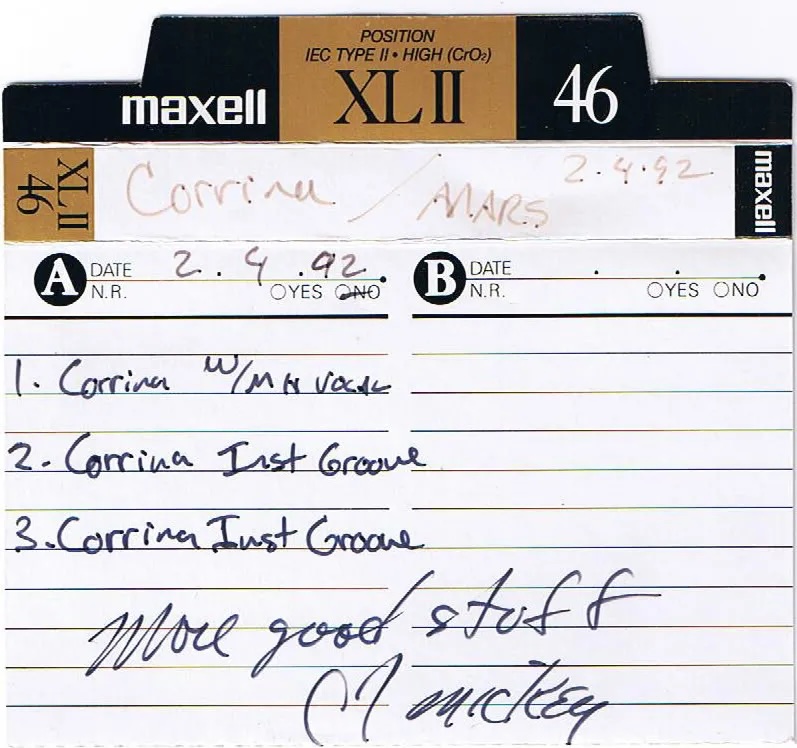 POSITION
IEC TYPE II • HIGH (CrO₂)
maxell XLII 46
XLII 46 Corrina / MARS 2.4.92 maxell
A DATE 2.4.92
N.R. ○YES ○NO
B DATE . .
N.R. ○YES ○NO
1. Corrina w/MH vocal
2. Corrina Inst Groove
3. Corrina Inst Groove
More good stuff
Mickey